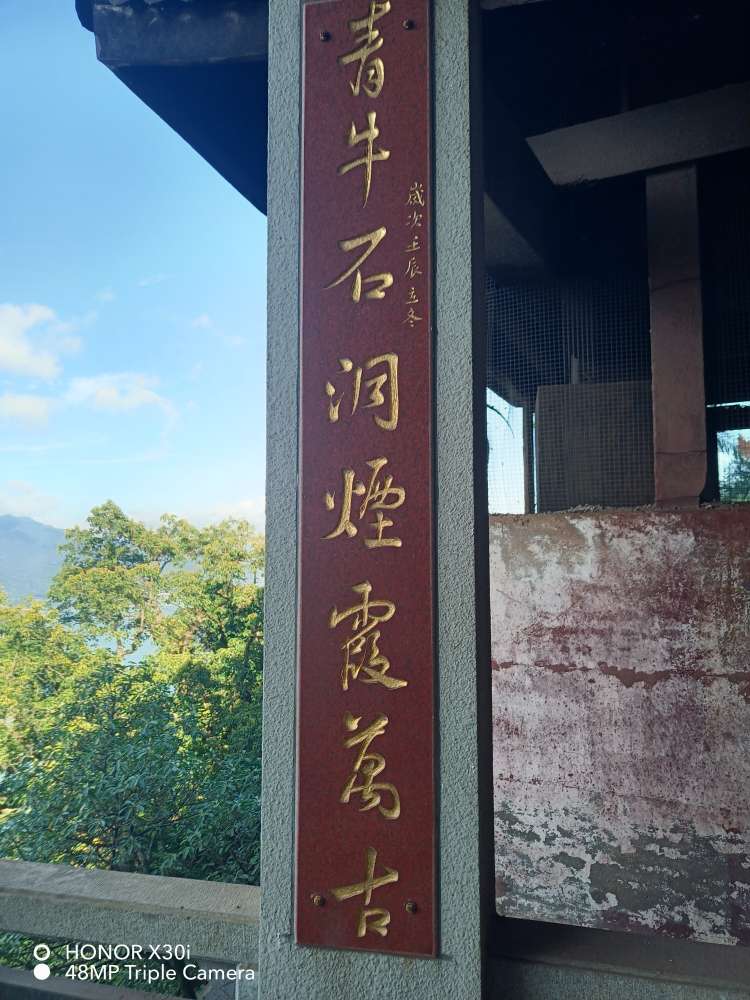 歲次壬辰立冬
青牛石洞煙霞萬古
HONOR X30i
48MP Triple Camera